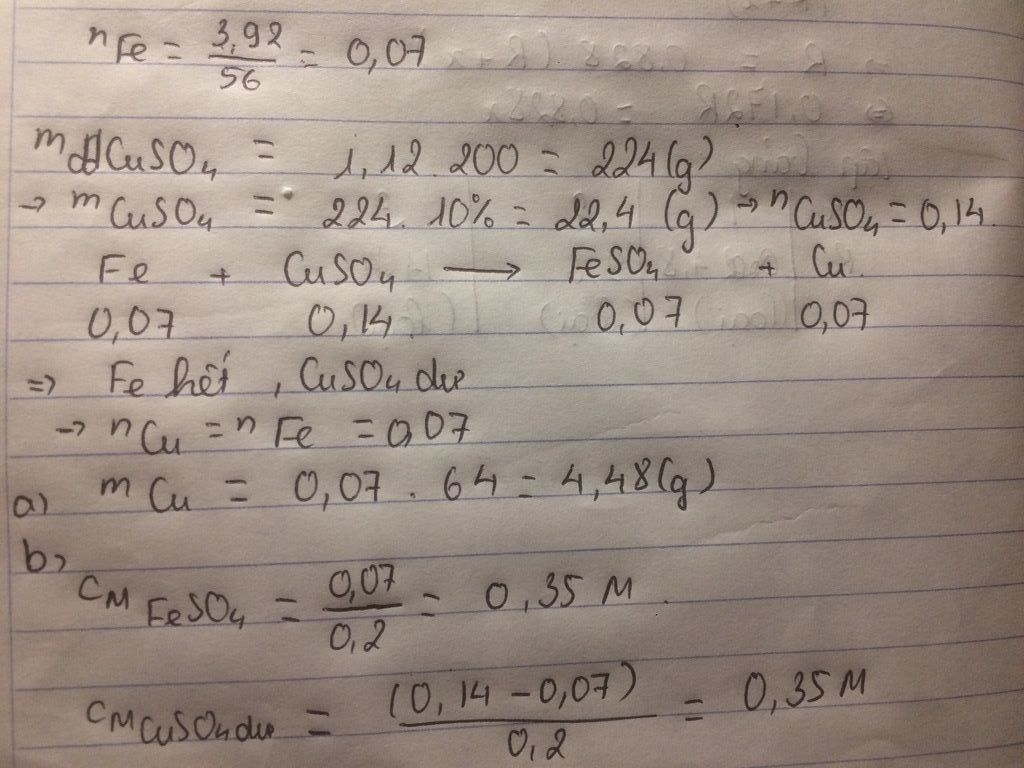 nFe = 3,92/56 = 0,07
mddCuSO4 = 1,12 . 200 = 224(g)
→ mCuSO4 = 224. 10% = 22,4 (g) → nCuSO4 = 0,14.
Fe + CuSO4 ⟶ FeSO4 + Cu.
0,07 0,14 0,07 0,07
=> Fe hết , CuSO4 dư
→ nCu = nFe = 0,07
a) mCu = 0,07 . 64 = 4,48(g)
b,
CM FeSO4 = 0,07/0,2 = 0,35 M.
CM CuSO4 dư = (0,14 - 0,07)/0,2 = 0,35 M